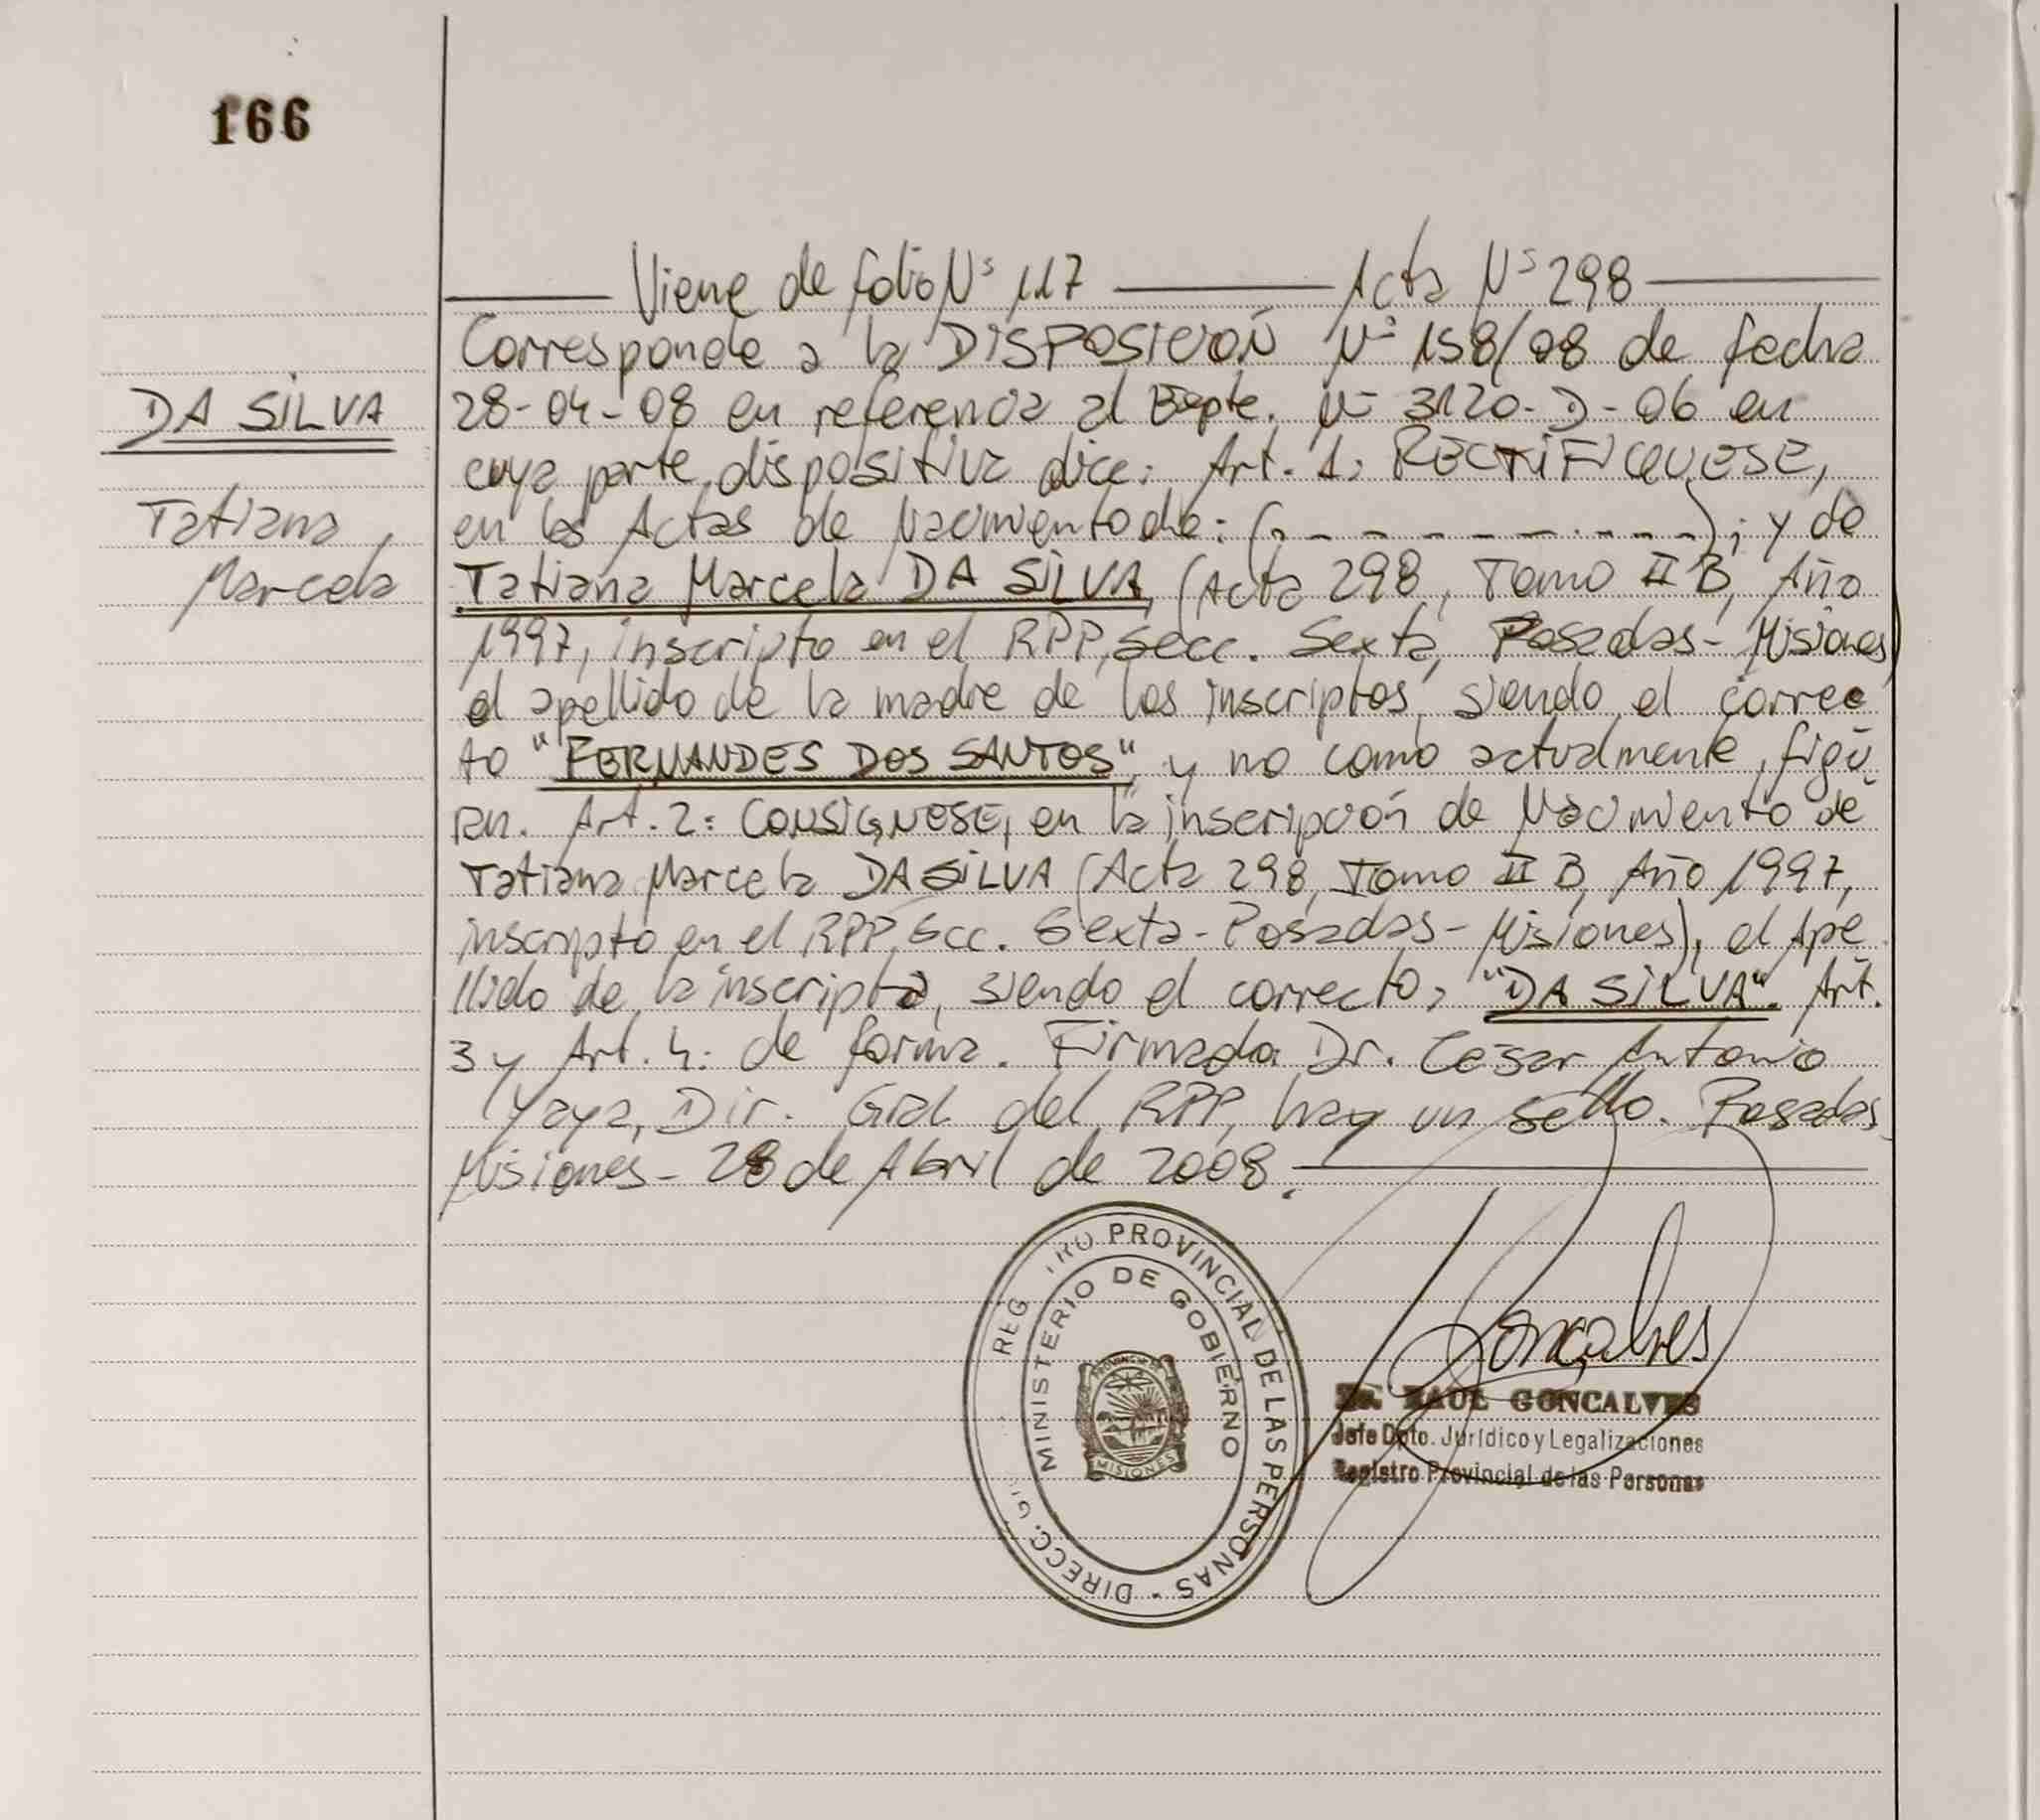 166
Viene de folio Nº 117 Acta Nº 298
Corresponde a la DISPOSICIÓN Nº 158/08 de fecha
DA SILVA
28-04-08 en referencia al Expte. Nº 3120-D-06 en
cuya parte dispositiva dice: Art. 1: RECTIFIQUESE,
Tatiana
en las Actas de Nacimiento de: (- - - - - - - - - -); y de
Marcela
Tatiana Marcela DA SILVA, (Acta 298, Tomo II B, Año
1997, inscripto en el RPP, Secc. Sexta, Posadas - Misiones)
el apellido de la madre de los inscriptos, siendo el correc
to "FERNANDES DOS SANTOS", y no como actualmente figu
ran. Art. 2: CONSIGNESE, en la inscripción de Nacimiento de
Tatiana Marcela DA SILVA (Acta 298, Tomo II B, Año 1997,
inscripto en el RPP, Secc. Sexta - Posadas - Misiones), el Ape
llido de la inscripta, siendo el correcto, "DA SILVA". Art.
3 y Art. 4: de forma. Firmado Dr. Cesar Antonio
Yaya, Dir. Gral del RPP, hay un sello. Posadas
Misiones - 28 de Abril de 2008.
REG TRO PROVINCIAL DE LAS PERSONAS - DIRECC. G
MINISTERIO DE GOBIERNO
PROVINCIA DE
MISIONES
Goncalves
Dr. RAUL GONCALVES
Jefe Dpto. Jurídico y Legalizaciones
Registro Provincial de las Personas